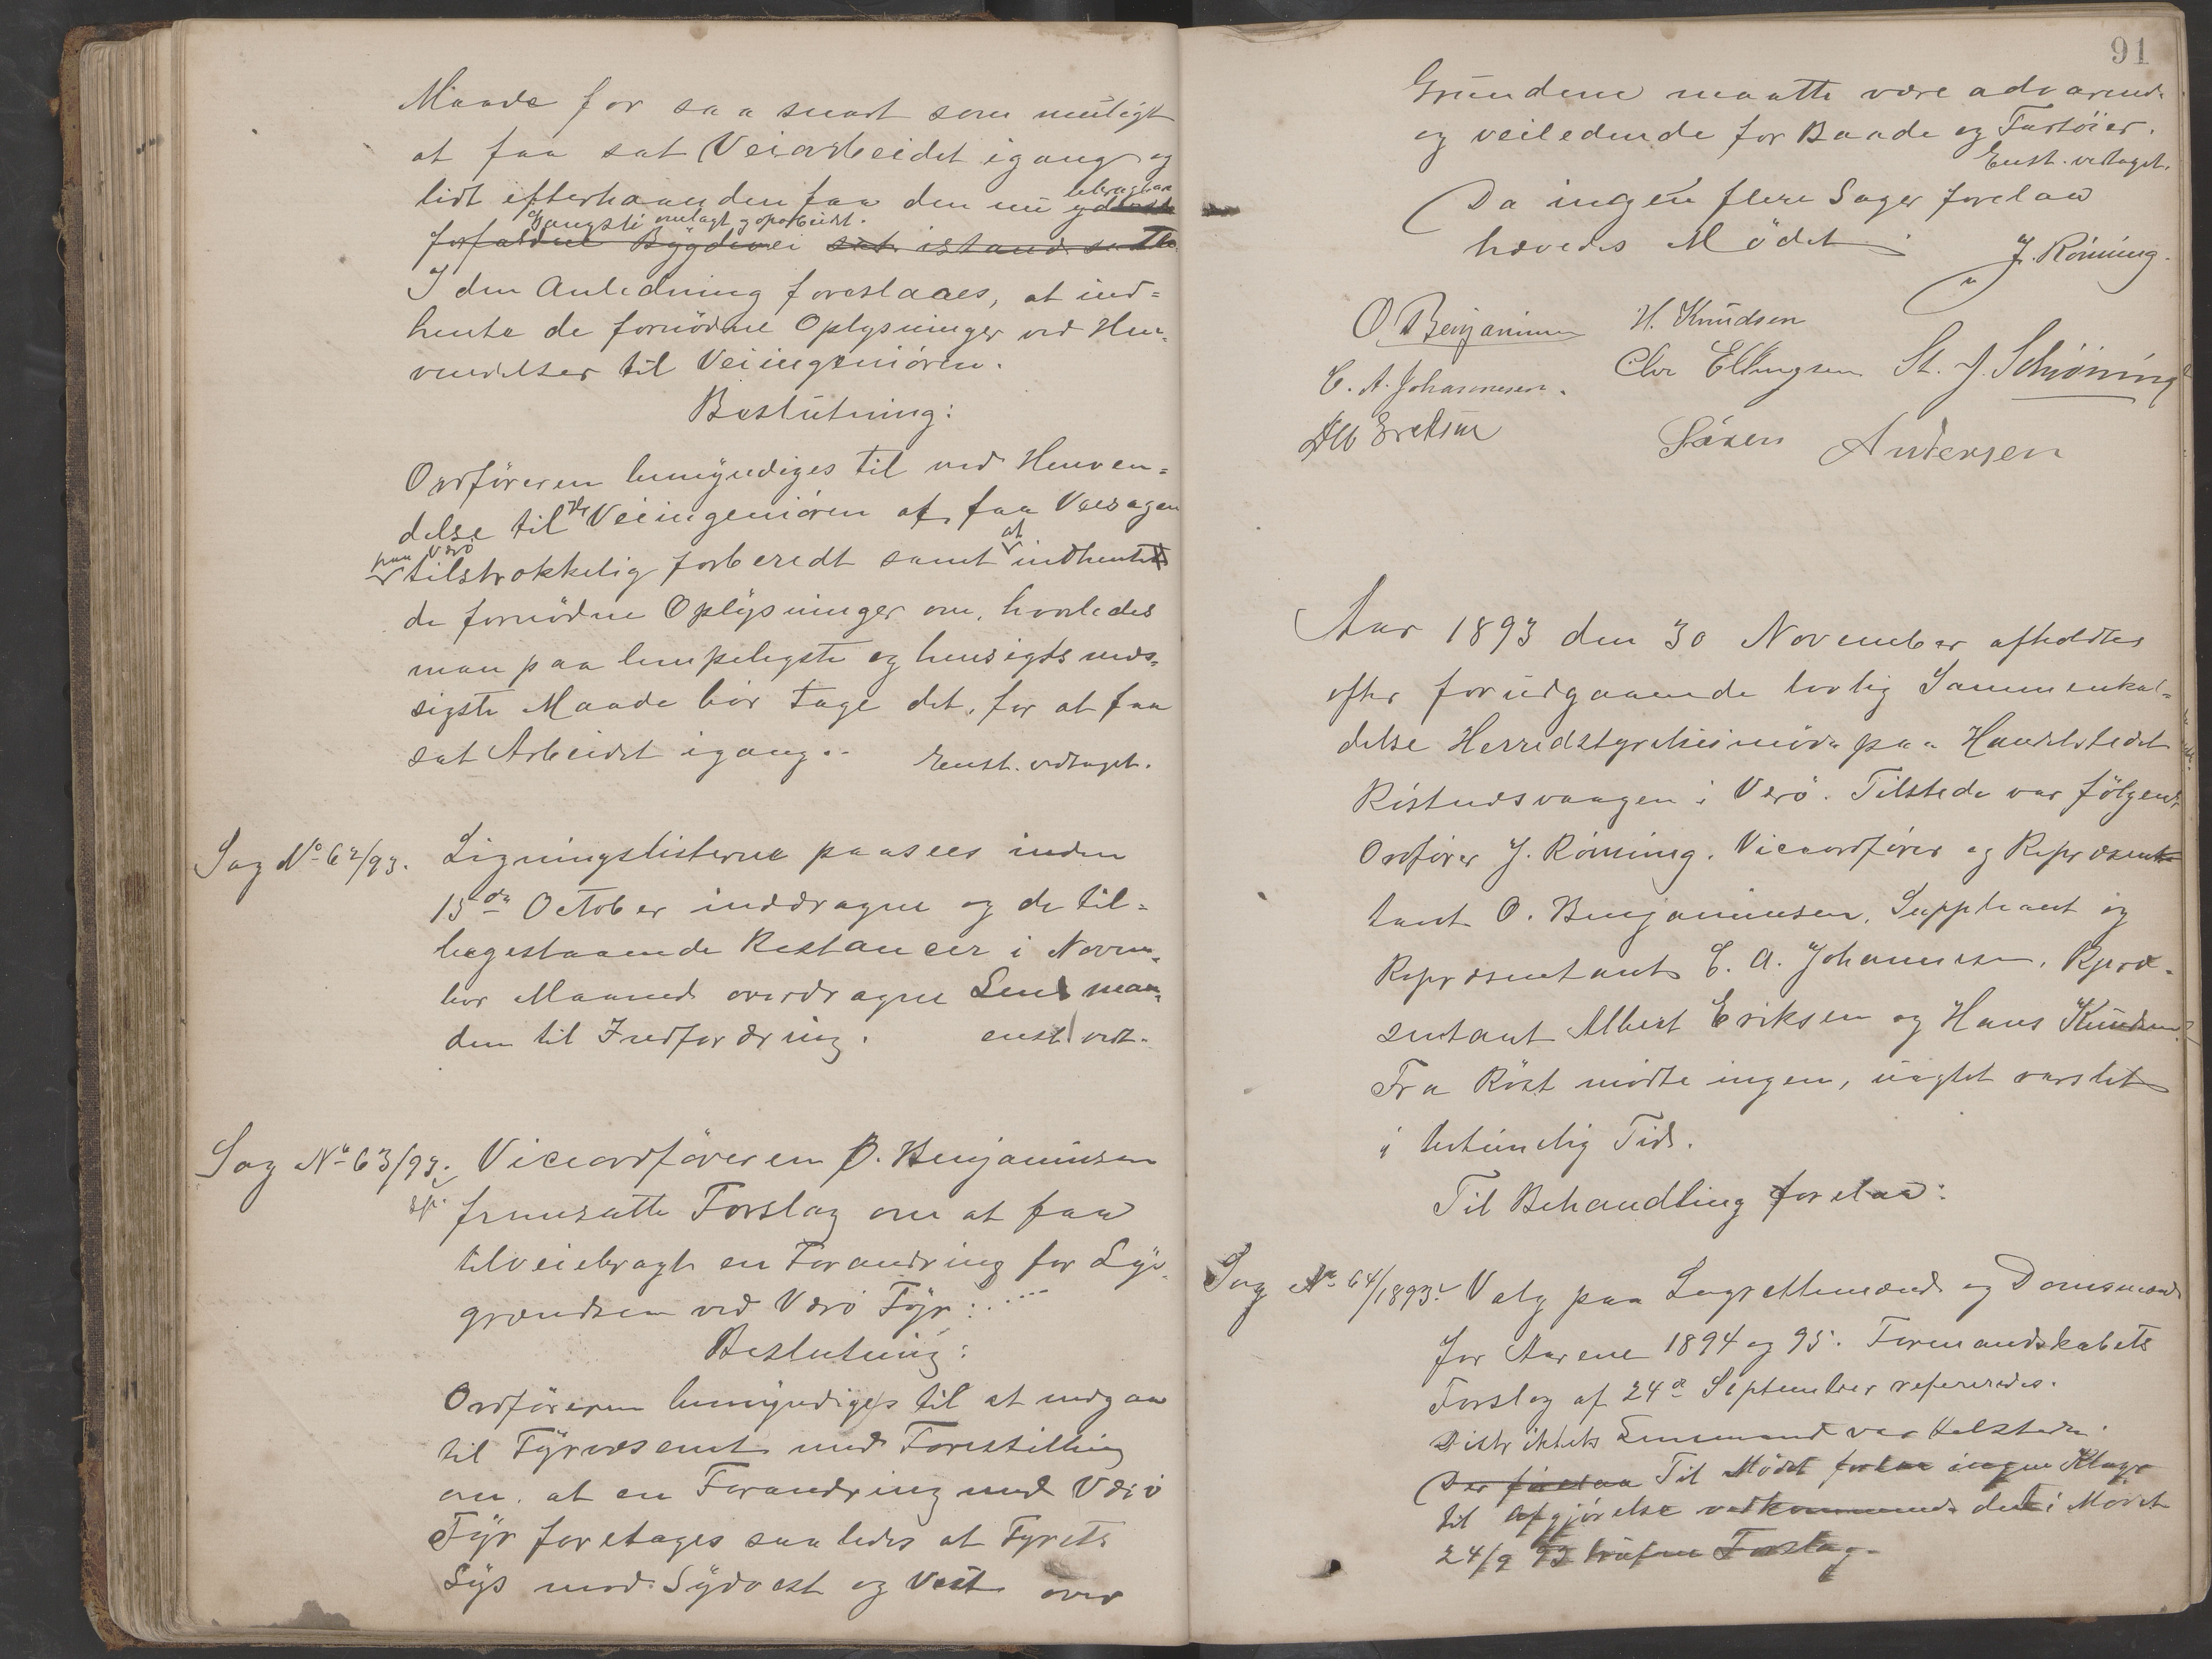 Maade for saa snart som muligt
at faa sat Veiarbeidet igang og
lidt efterhaanden faa den nu
Gangsti omlagt og oparbeidet.
forfaldne Bygdevei sat istandsatte
I den Anledning foreslaaes, at ind-
hente de fornödne Oplysninger ved Hen-
vendelser til Veiingeniören.
Beslutning:
Ordföreren bemyndiges til ved Henven-
delse til Hr Veiingeniören at faa Veisagen
paa Værö tilstrækkelig forberedt samt at indhente
de fornödne Oplysninger om, hvorledes
man paa lempeligste og hensigtsmæs-
sigste Maade bör tage det, for at faa
sat Arbeidet igang.. Enst. vedtaget.
Sag No 62/93. Ligningslisterne paasees inden
15de October inddragne og de til-
bagestaaende Restancer i Novem-
ber Maaned overdragne Lensman-
den til Indfordring. enst. vedt.
Sag No 63/93. Viceordföreren O. Benjaminsen
fremsatte Forslag om at faa
tilveiebragt en Forandring for Lys-
grændsen ved Værö Fyr:....
Beslutning:
Ordföreren bemyndiges til at indgaa
til Fyrvæsenet med Forestilling
om, at en Forandring med Værö
Fyr foretages saaledes at Fyrets
Lys mod Sydvest og Vest over
91
Grundene maatte være advarende
og veiledende for Baade og Fartöier.
Enst. vedtaget.
Da ingen flere Sager forelaa
hævedes Mödet.
J. Rönning.
O Benjaminsen H. Knudsen
C. A. Johannesen. Chr Ellingsen St. J. Schiöning
Alb Eriksen Sören Andersen
Aar 1893 den 30 November afholdtes
efter forudgaaende lovlig Sammenkal-
delse Herredstyrelsesmöde paa Handelstedet
Röstnesvaagen i Værö. Tilstede var fölgende
Ordförer J. Rönning. Viceordförer og Repræsen-
tant O. Benjaminsen, Suppleant og
Repræsentant C. A. Johannesen, Repræ-
sentant Albert Eriksen og Hans Knudsen
Fra Röst mödte ingen, uagtet varslet
i betimelig Tid.
Til Behandling forelaa:
Sag No 64/1893. Valg paa Lagrettemænd og Domsmænd
for Aarene 1894 og 95. Formandskabets
Forslag af 24de September refereredes.
Distriktets Lensmand var tilstede.
Der forelaa Til Mödet forelaa ingen Klage
til Afgjörelse vedkommende det i Mödet
24/9 93 trufne Forslag.